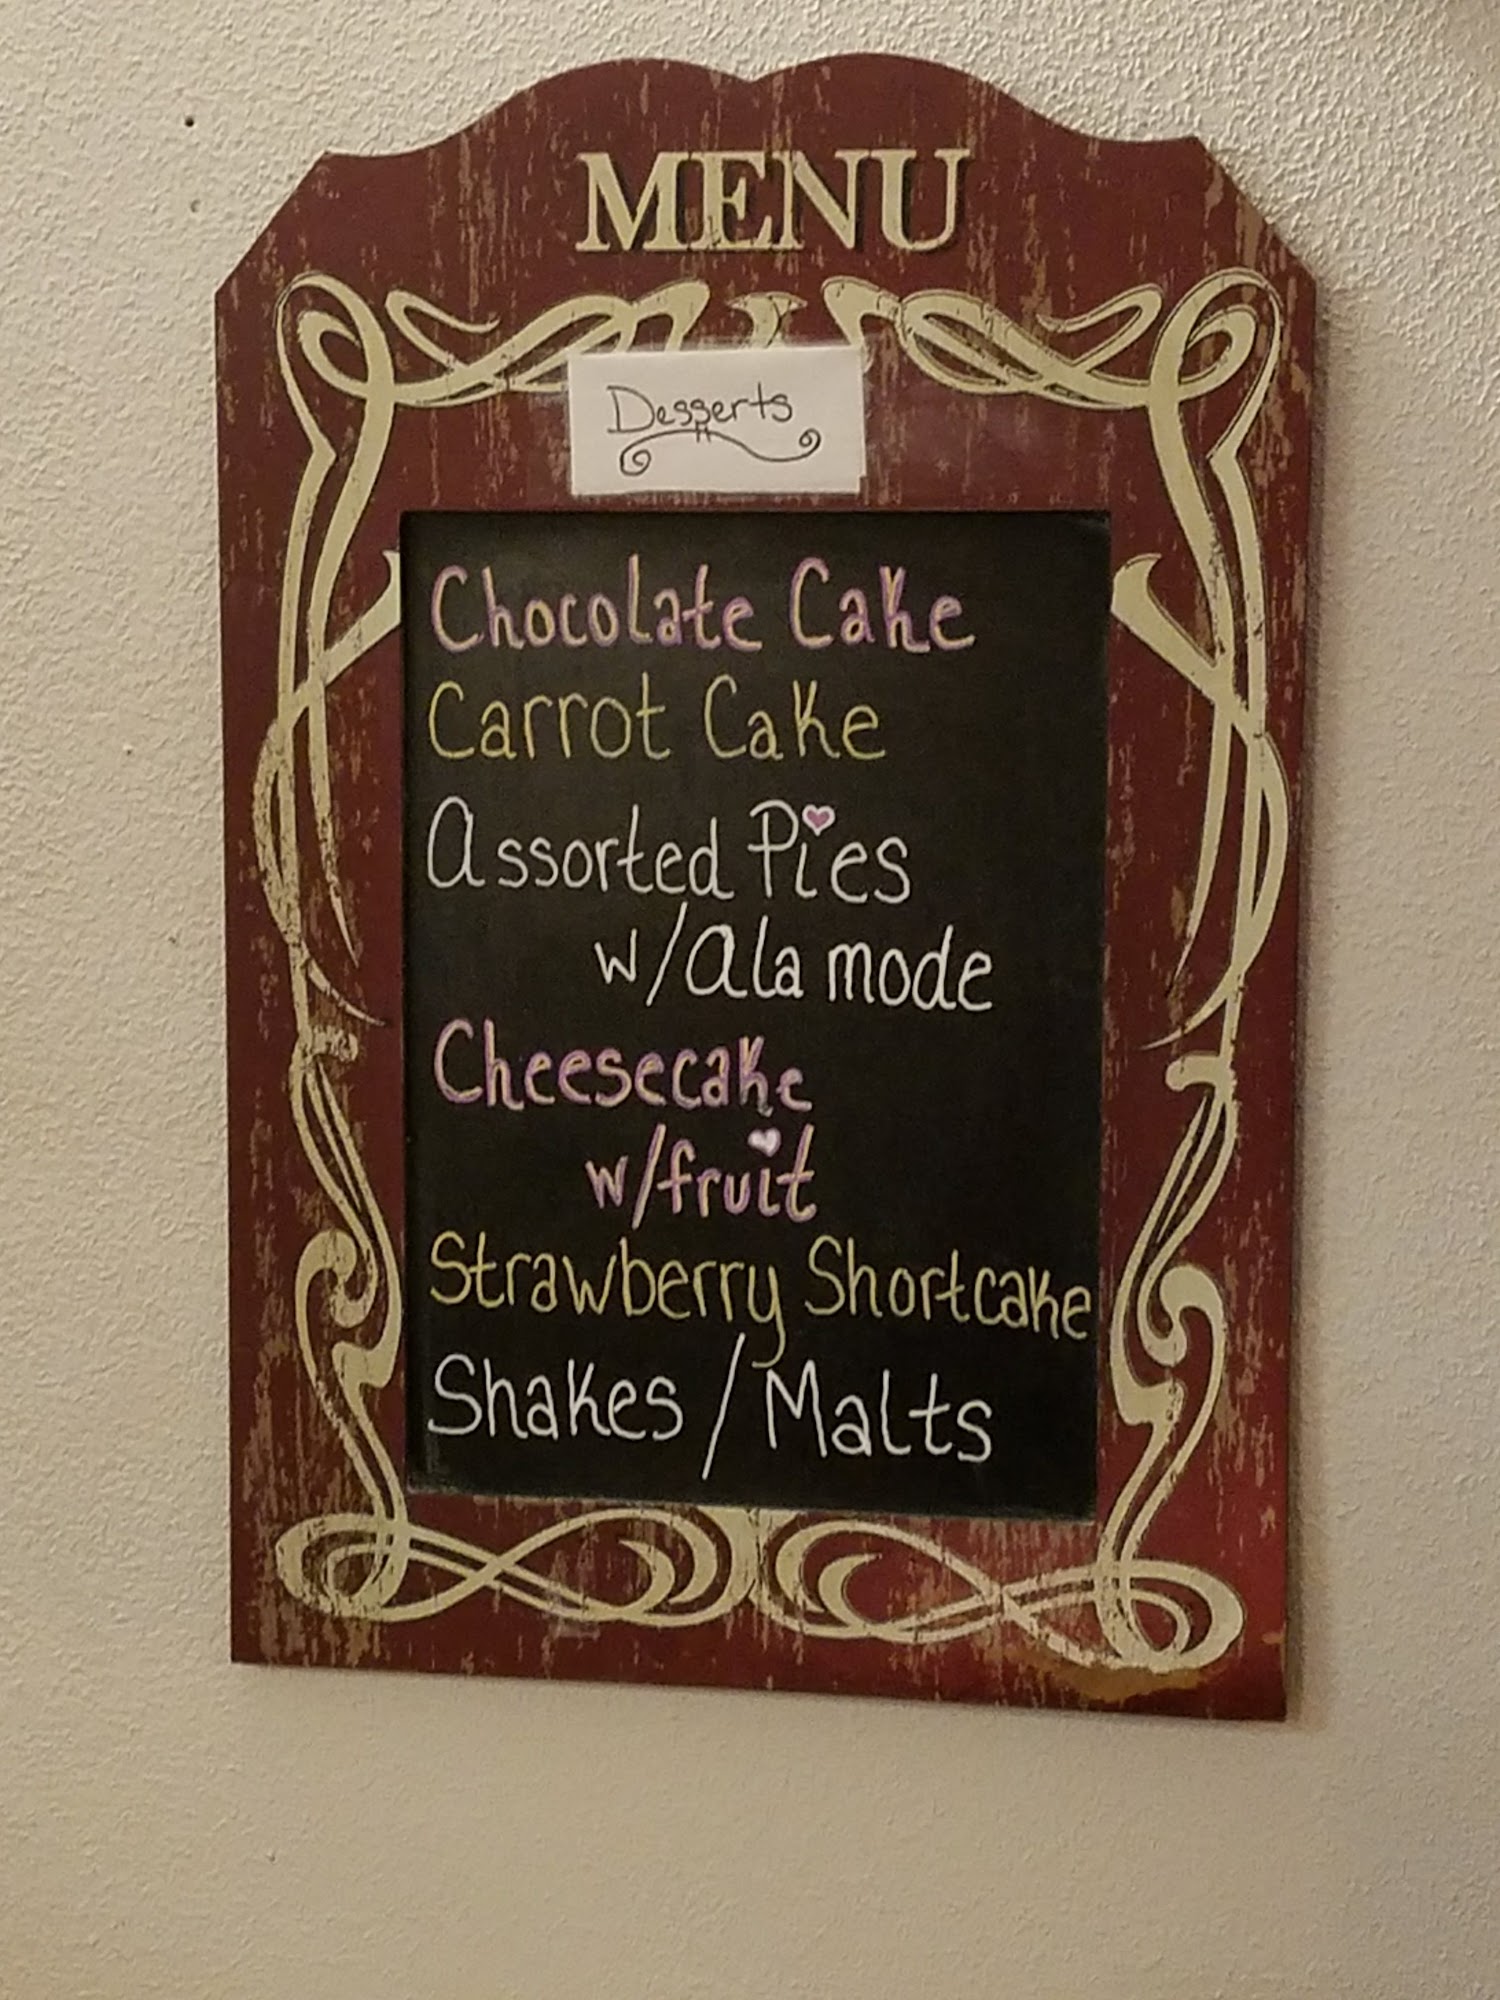 MENU
Desserts
Chocolate Cake
Carrot Cake
Assorted Pies
w/Ala mode
Cheesecake
w/fruit
Strawberry Shortcake
Shakes / Malts